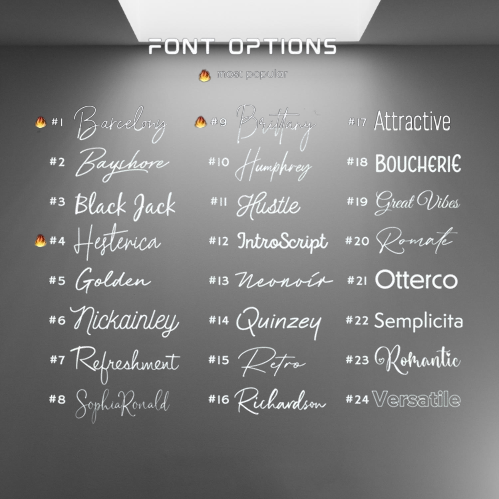 FONT OPTIONS
most popular
#1 Barcelony
#2 Bayshore
#3 Black Jack
#4 Hesterica
#5 Golden
#6 Nickainley
#7 Refreshment
#8 SophiaRonald
#9 Brittany
#10 Humphrey
#11 Hustle
#12 IntroScript
#13 Neonoir
#14 Quinzey
#15 Retro
#16 Richardson
#17 Attractive
#18 BOUCHERIE
#19 Great Vibes
#20 Romate
#21 Otterco
#22 Semplicita
#23 Romantic
#24 Versatile